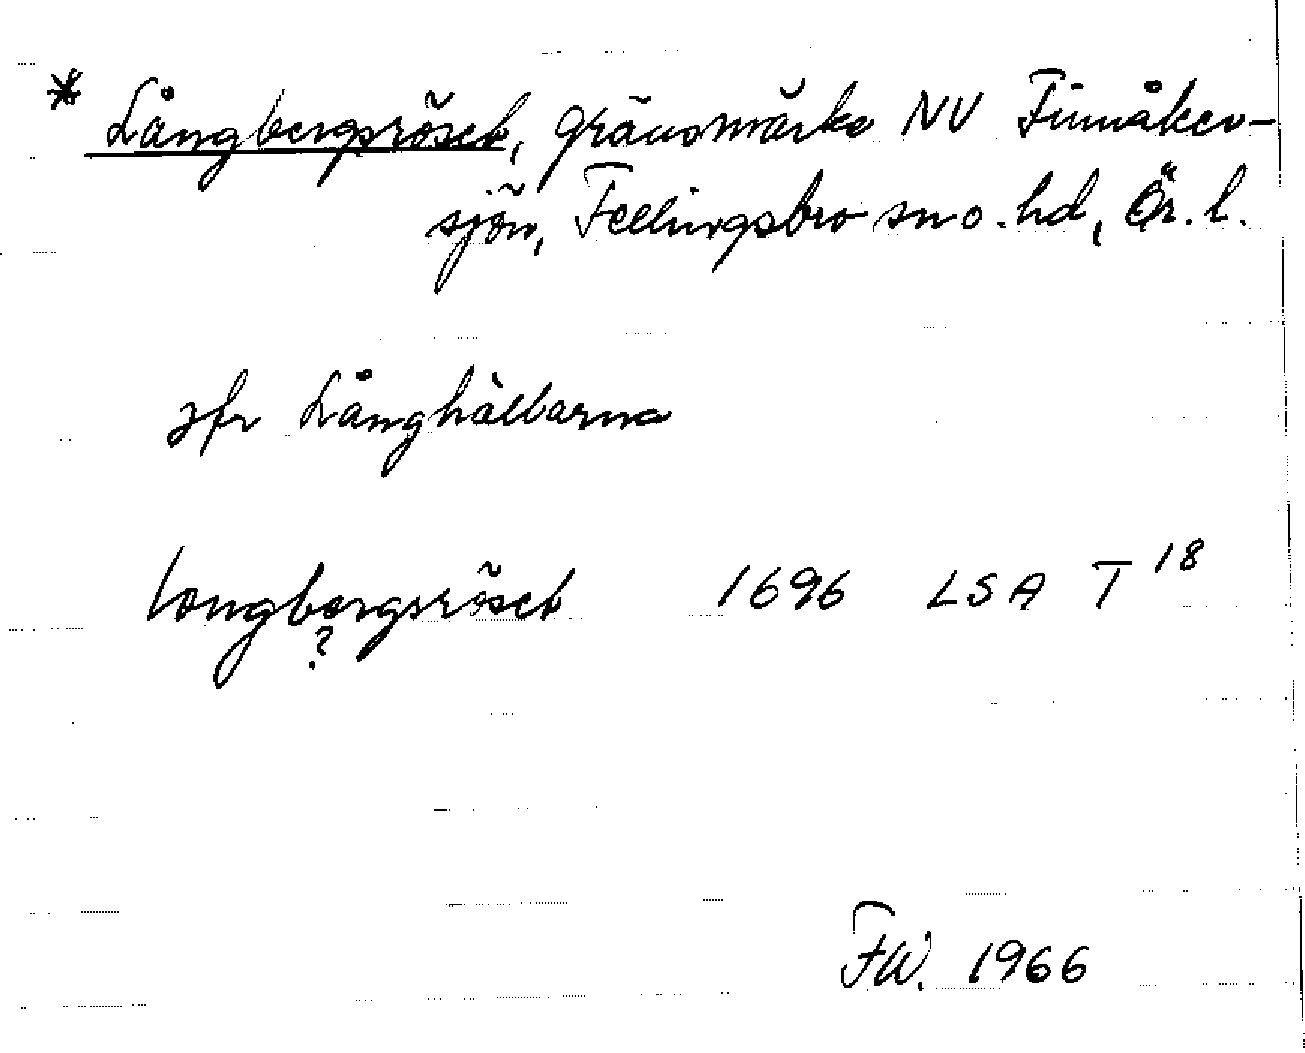 * Långbergsröset, gränsmärke NV Finnåker-
sjön, Fellingsbro sn o. hd, Ör. l.
jfr Långhällarna
Longbergsröset 1696 LSA T 18
?
FW. 1966